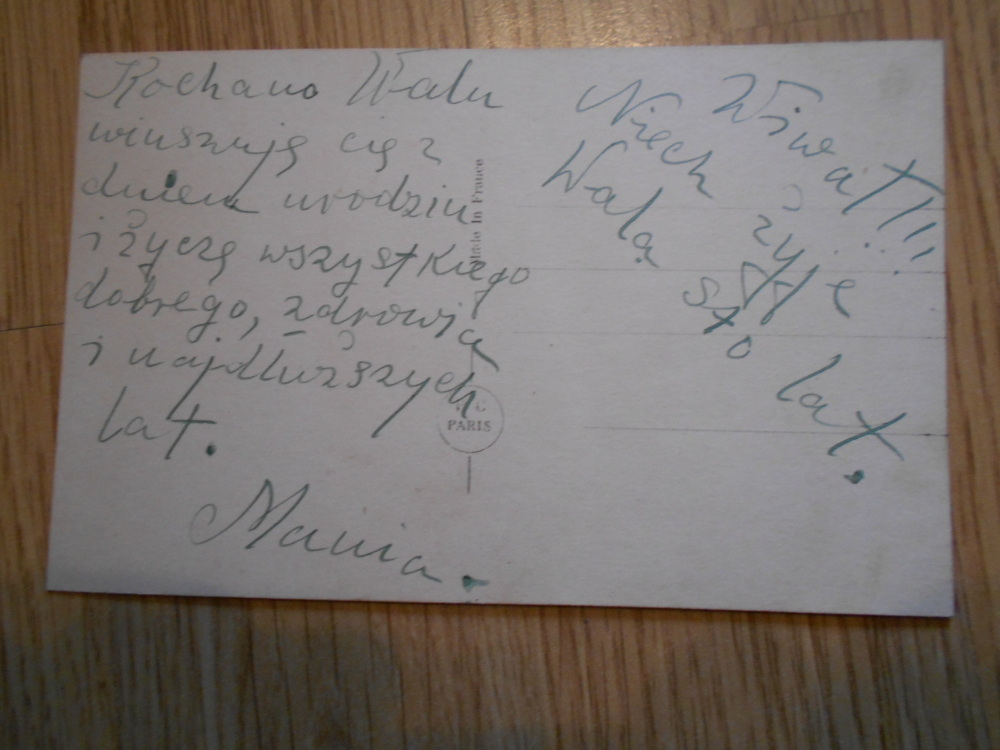 Kochano Walu
winszuję cię z
dniem urodzin
i życzę wszystkiego
dobrego, zdrowia
i najdłuższych
lat.
Mania.
Made In France
PARIS
Wiwat!!!
Niech żyje
Wala sto lat.